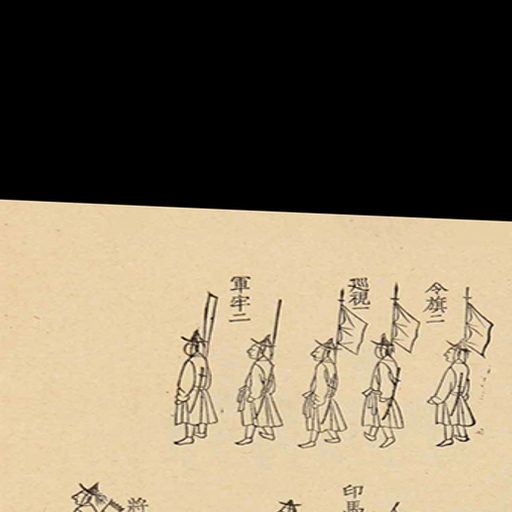 令旗二
巡視一
軍牢二
印馬
將